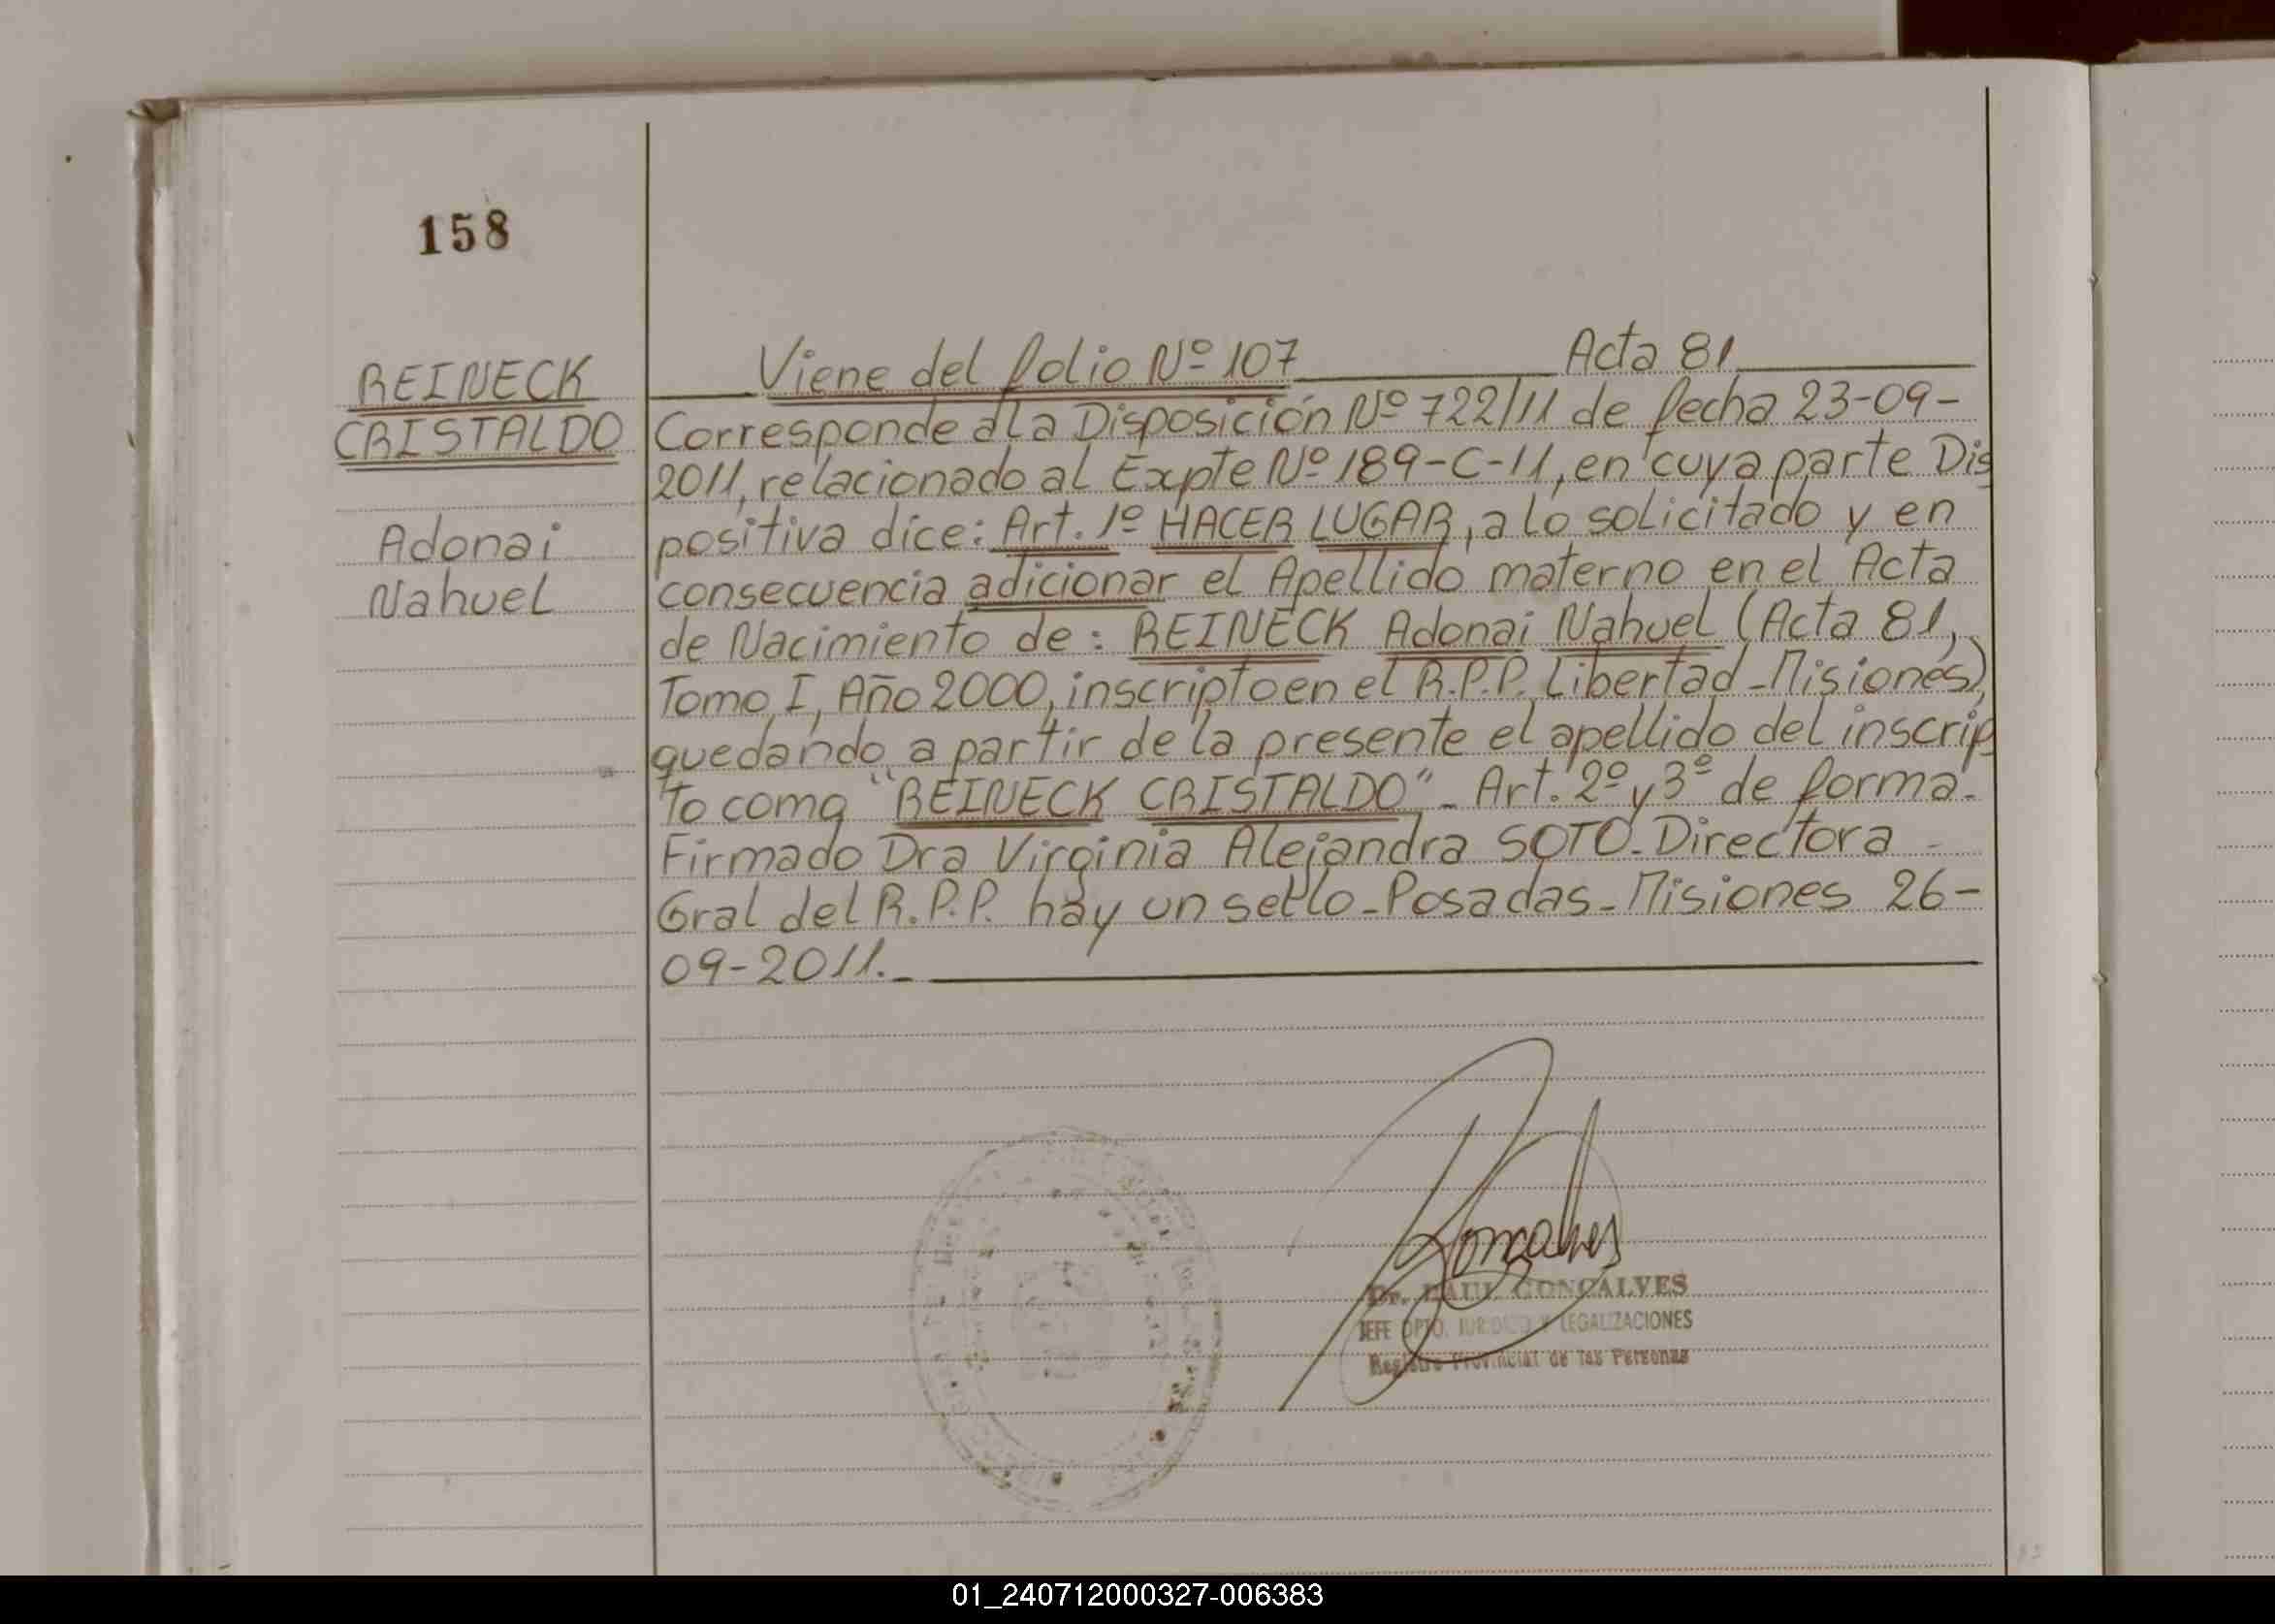 158
REINECK
CRISTALDO
Adonai
Nahuel
Viene del folio Nº 107 Acta 81
Corresponde a la Disposición Nº 722/11 de fecha 23-09-
2011, relacionado al Expte Nº 189-C-11, en cuya parte Dis
positiva dice: Art. 1º HACER LUGAR, a lo solicitado y en
consecuencia adicionar el Apellido materno en el Acta
de Nacimiento de: REINECK Adonai Nahuel (Acta 81,
Tomo I, Año 2000, inscripto en el R.P.P. Libertad - Misiones),
quedando a partir de la presente el apellido del inscrip
to como "REINECK CRISTALDO"- Art. 2º y 3º de forma.
Firmado Dra Virginia Alejandra SOTO - Directora -
Gral del R.P.P. hay un sello - Posadas - Misiones 26-
09-2011.-
Gonçalves
Dr. RAUL GONÇALVES
JEFE DPTO. JURIDICO Y LEGALIZACIONES
Registro Provincial de las Personas
01_240712000327-006383